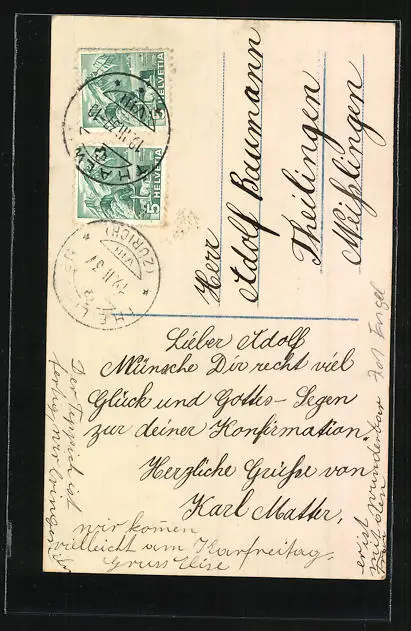 HELVETIA
HELVETIA
5
(ZÜRICH)
Herr
Adolf Baumann
Theilingen
Weißlingen
Lieber Adolf
Wünsche Dir recht viel
Glück und Gottes-Segen
zur deiner Konfirmation
Herzliche Grüße von
Karl Matter,
wir komen
vielleicht am Karfreitag.
Gruss Elise
Der Teppich ist
fertig, wir bringen ihn
er ist wunderbar
mit den